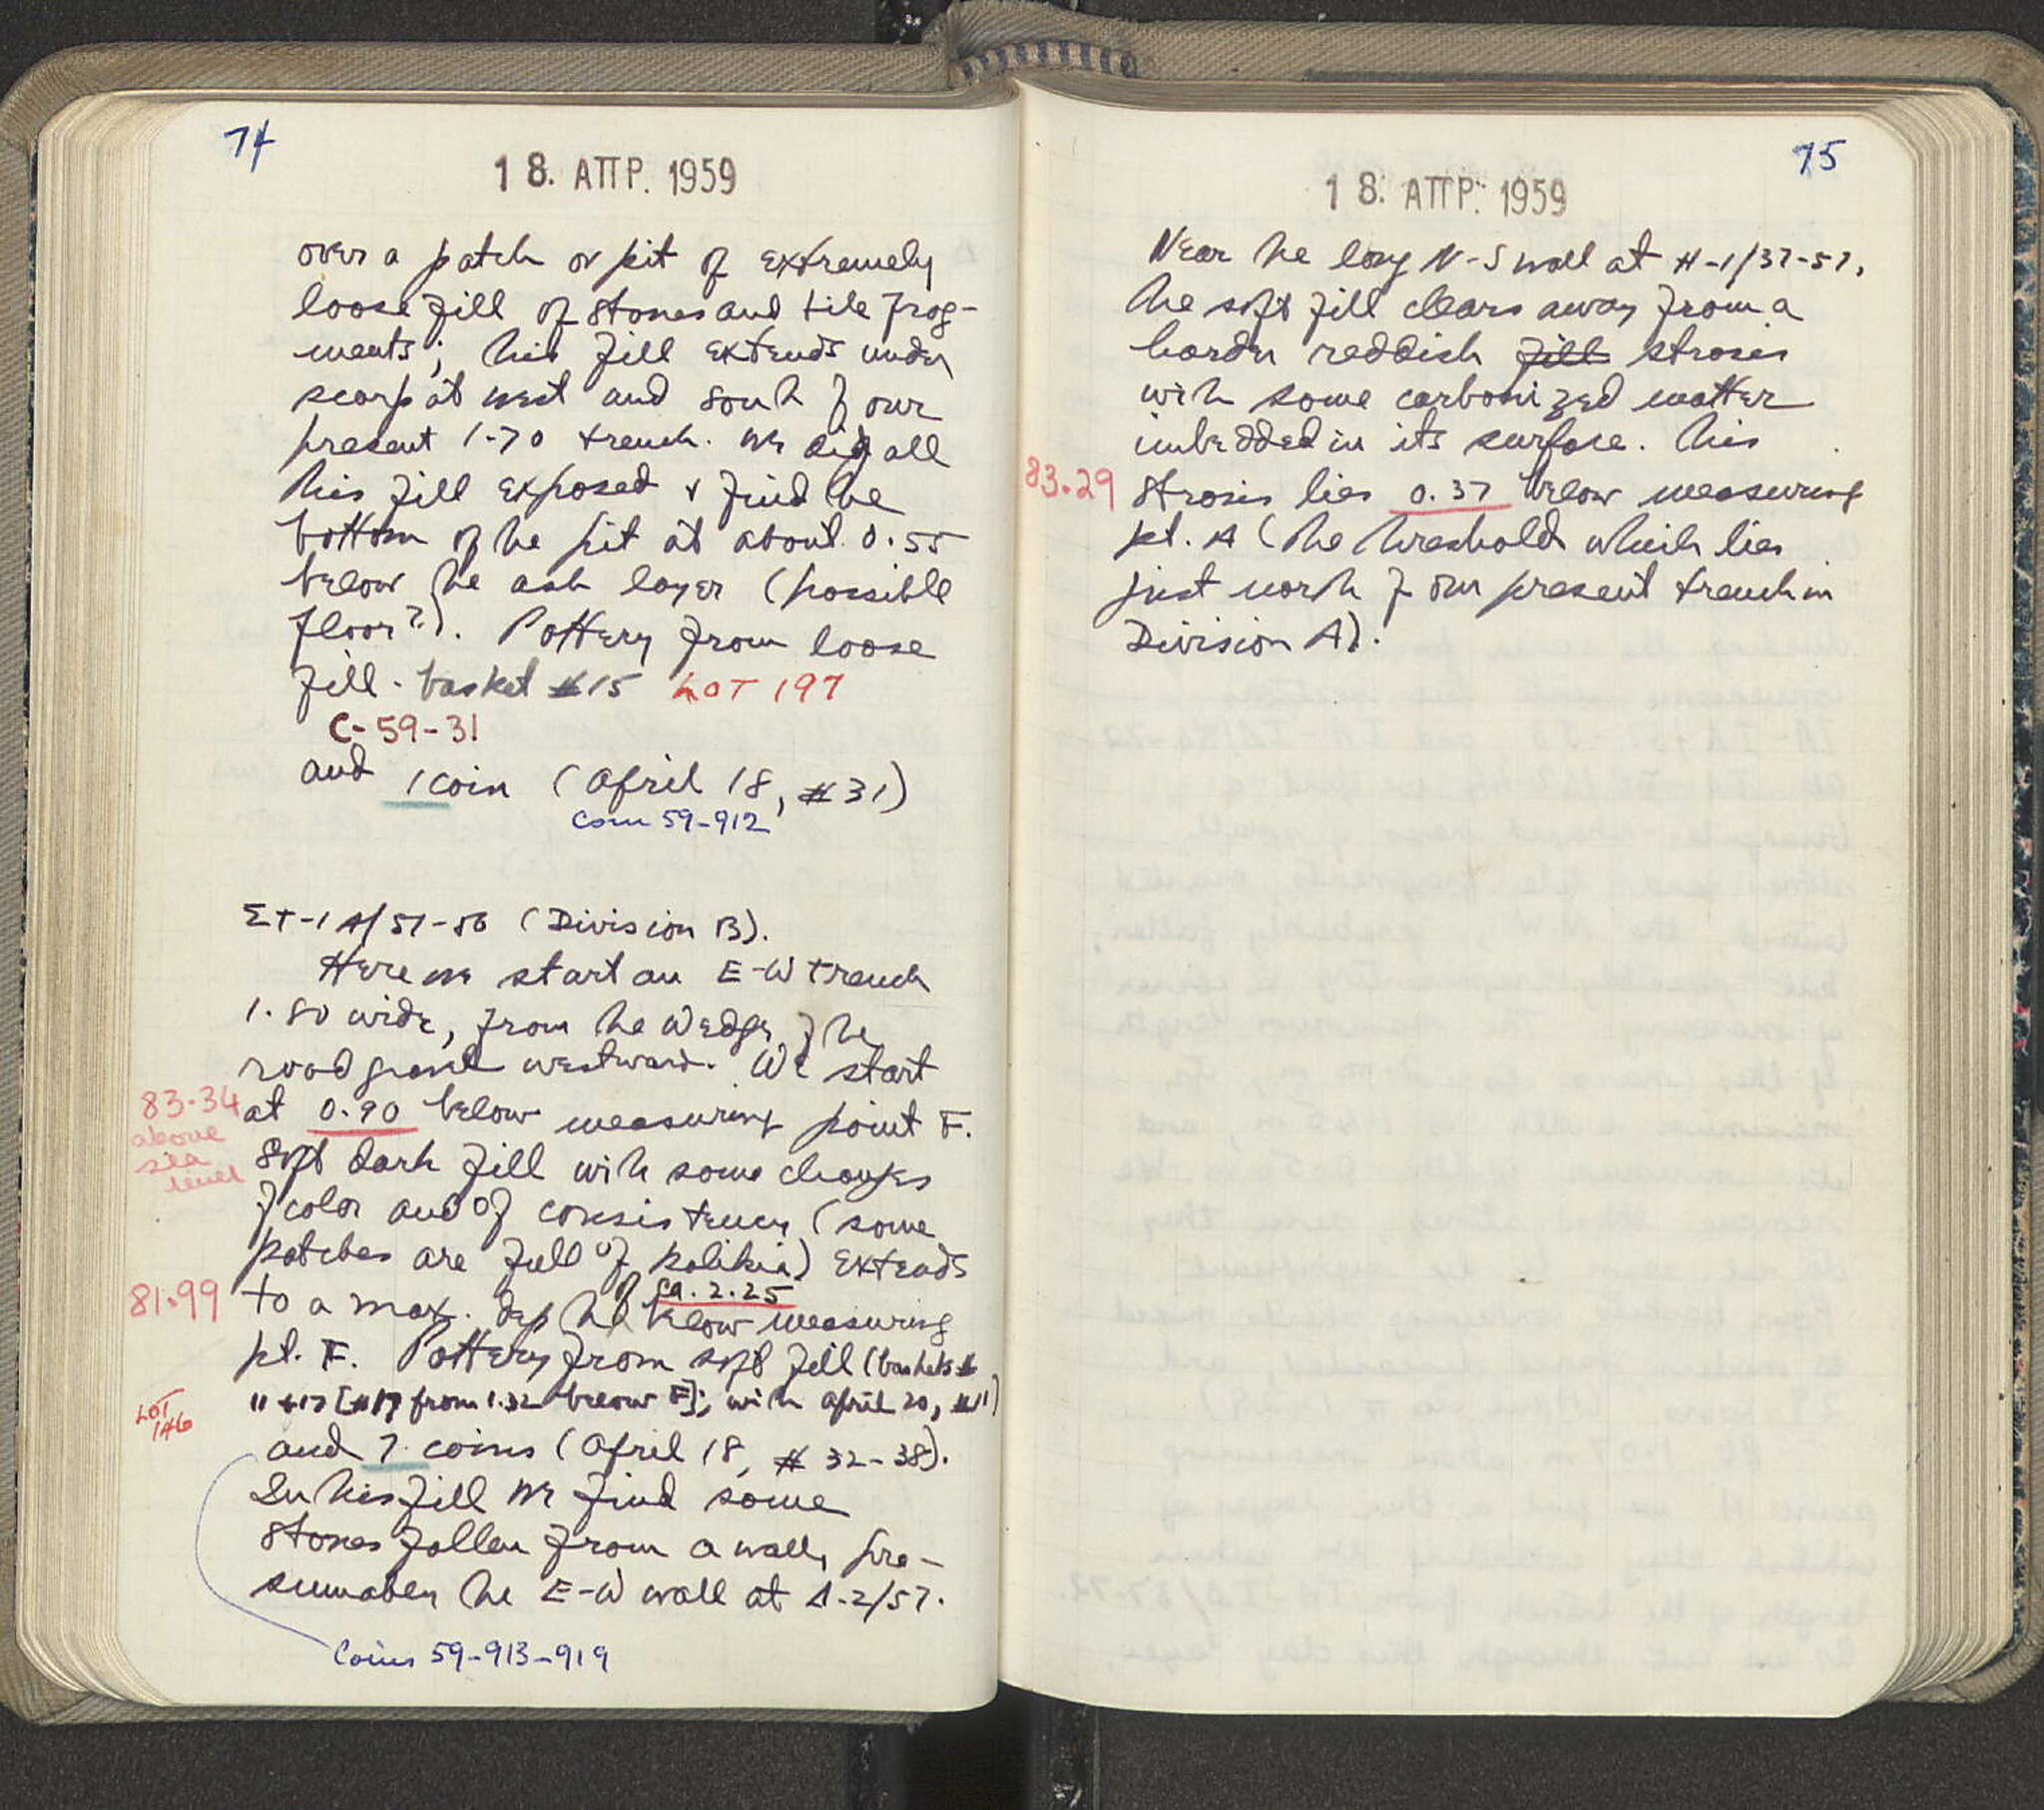 74
18. ΑΠΡ. 1959
over a patch or pit of extremely
loose fill of stones and tile frag-
ments; this fill extends under
scarp at west and south of our
present 1.70 trench. We dig all
this fill exposed & find the
bottom of the pit at about 0.55
below the ash layer (possible
floor?). Pottery from loose
fill - basket #15 LOT 197
C-59-31
and 1 coin (April 18, #31)
Coin 59-912
(Division B).
Here we start an E-W trench
1.80 wide, from the W edge of the
road westward. We start
83.34 at 0.90 below measuring point F.
above
sea
level
Soft dark fill with some changes
of color and of consistency (some
patches are full of kalikia) extends
81.99 to a max. depth of ca. 2.25 below measuring
pt. F. Pottery from soft fill (baskets #
11 + 17 [#17 from 1.32 below F]; with April 20, #11)
LOT
146
and 7 coins (April 18, #32-38).
In this fill we find some
stones fallen from a wall, pre-
sumably the E-W wall at Δ-2/57.
Coins 59-913-919
75
18. ΑΠΡ. 1959
Near the long N-S wall at H-1/37-57,
the soft fill clears away from a
harder reddish fill strosis
with some carbonized matter
imbedded in its surface. This
83.29 strosis lies 0.37 below measuring
pt. A (the threshold which lies
just north of our present trench in
Division A).